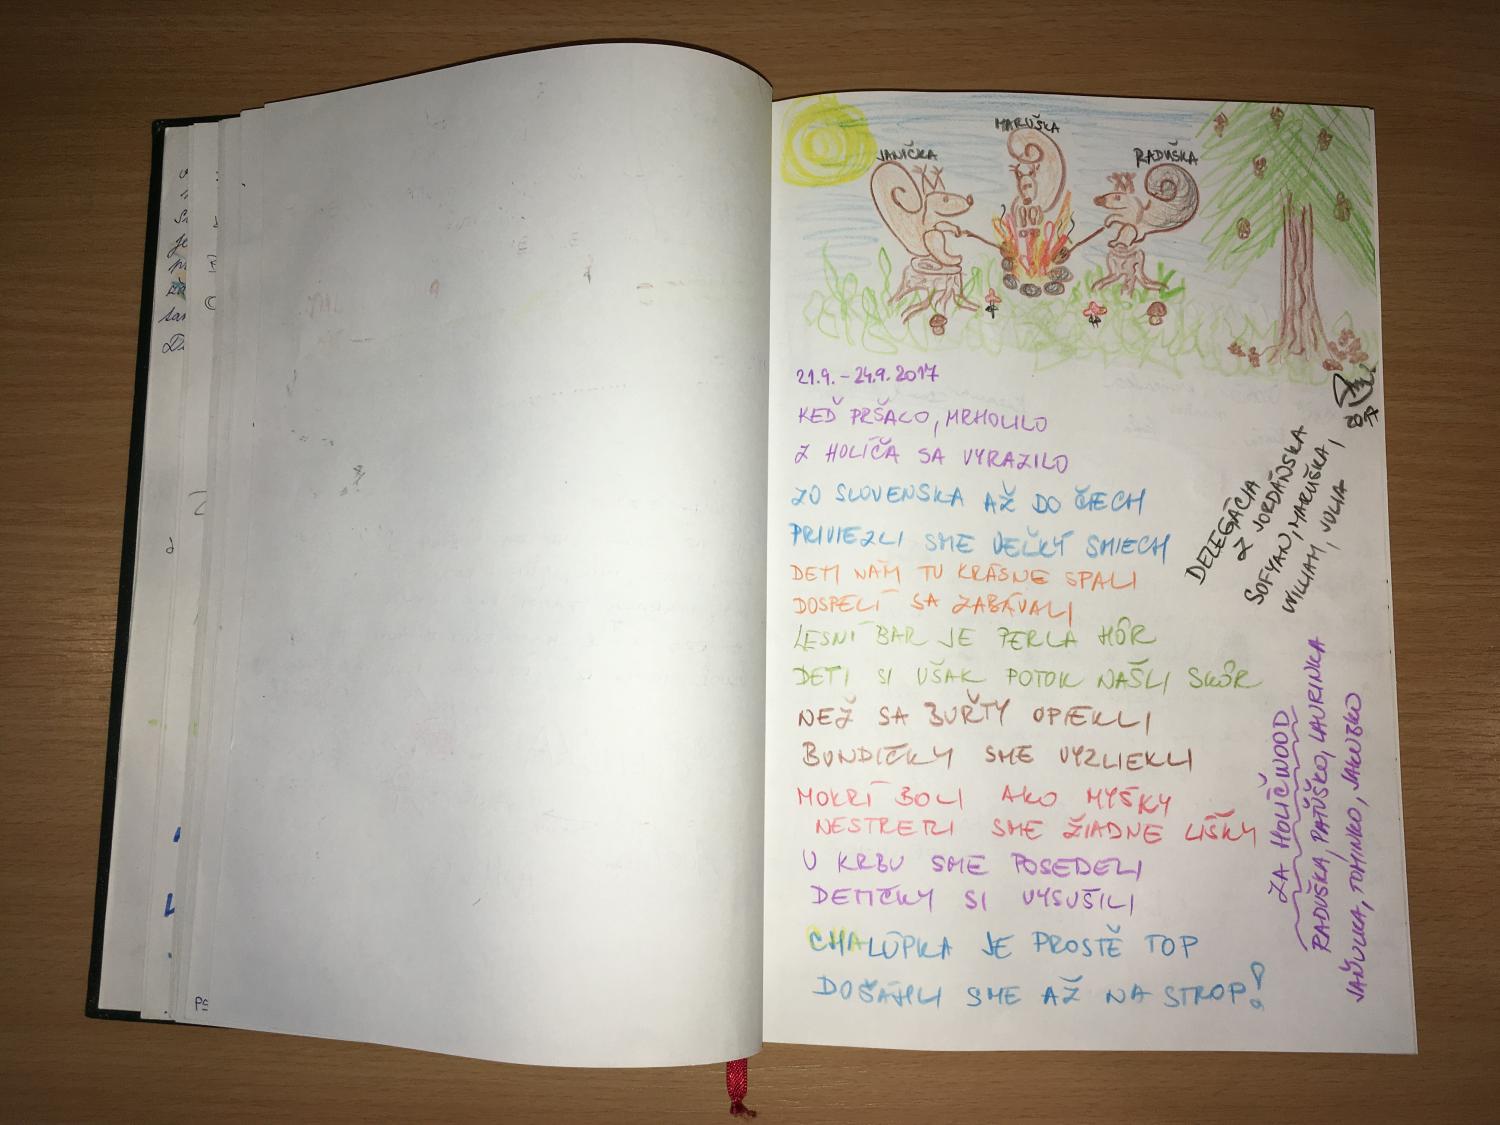 JANIČKA
MARUŠKA
RADUŠKA
21.9. - 24.9. 2017
KEĎ PRŠALO, MRHOLILO
Z HOLÍČA SA VYRAZILO
ZO SLOVENSKA AŽ DO ČIECH
PRIVIEZLI SME VEĽKÝ SMIECH
DETI NÁM TU KRÁSNE SPALI
DOSPELÍ SA ZABÁVALI
LESNÍ BAR JE PERLA HÔR
DETI SI VŠAK POTOK NAŠLI SKÔR
NEŽ SA BUŘTY OPIEKLI
BUNDIČKY SME VYZLIEKLI
MOKRÍ BOLI AKO MYŠKY
NESTRETLI SME ŽIADNE LÍŠKY
U KRBU SME POSEDELI
DETIČKY SI VYSUŠILI
CHALÚPKA JE PROSTĚ TOP
DOSIAHLI SME AŽ NA STROP!
DELEGÁCIA
Z JORDÁNSKA
SOFYAN, MARUŠKA,
WILLIAM, JULIA
ZA HOLÍČWOOD
RADUŠKA, PAŤUŠKO, LAURINKA
JAŇULKA, TOMINKO, JAKUBKO
2017